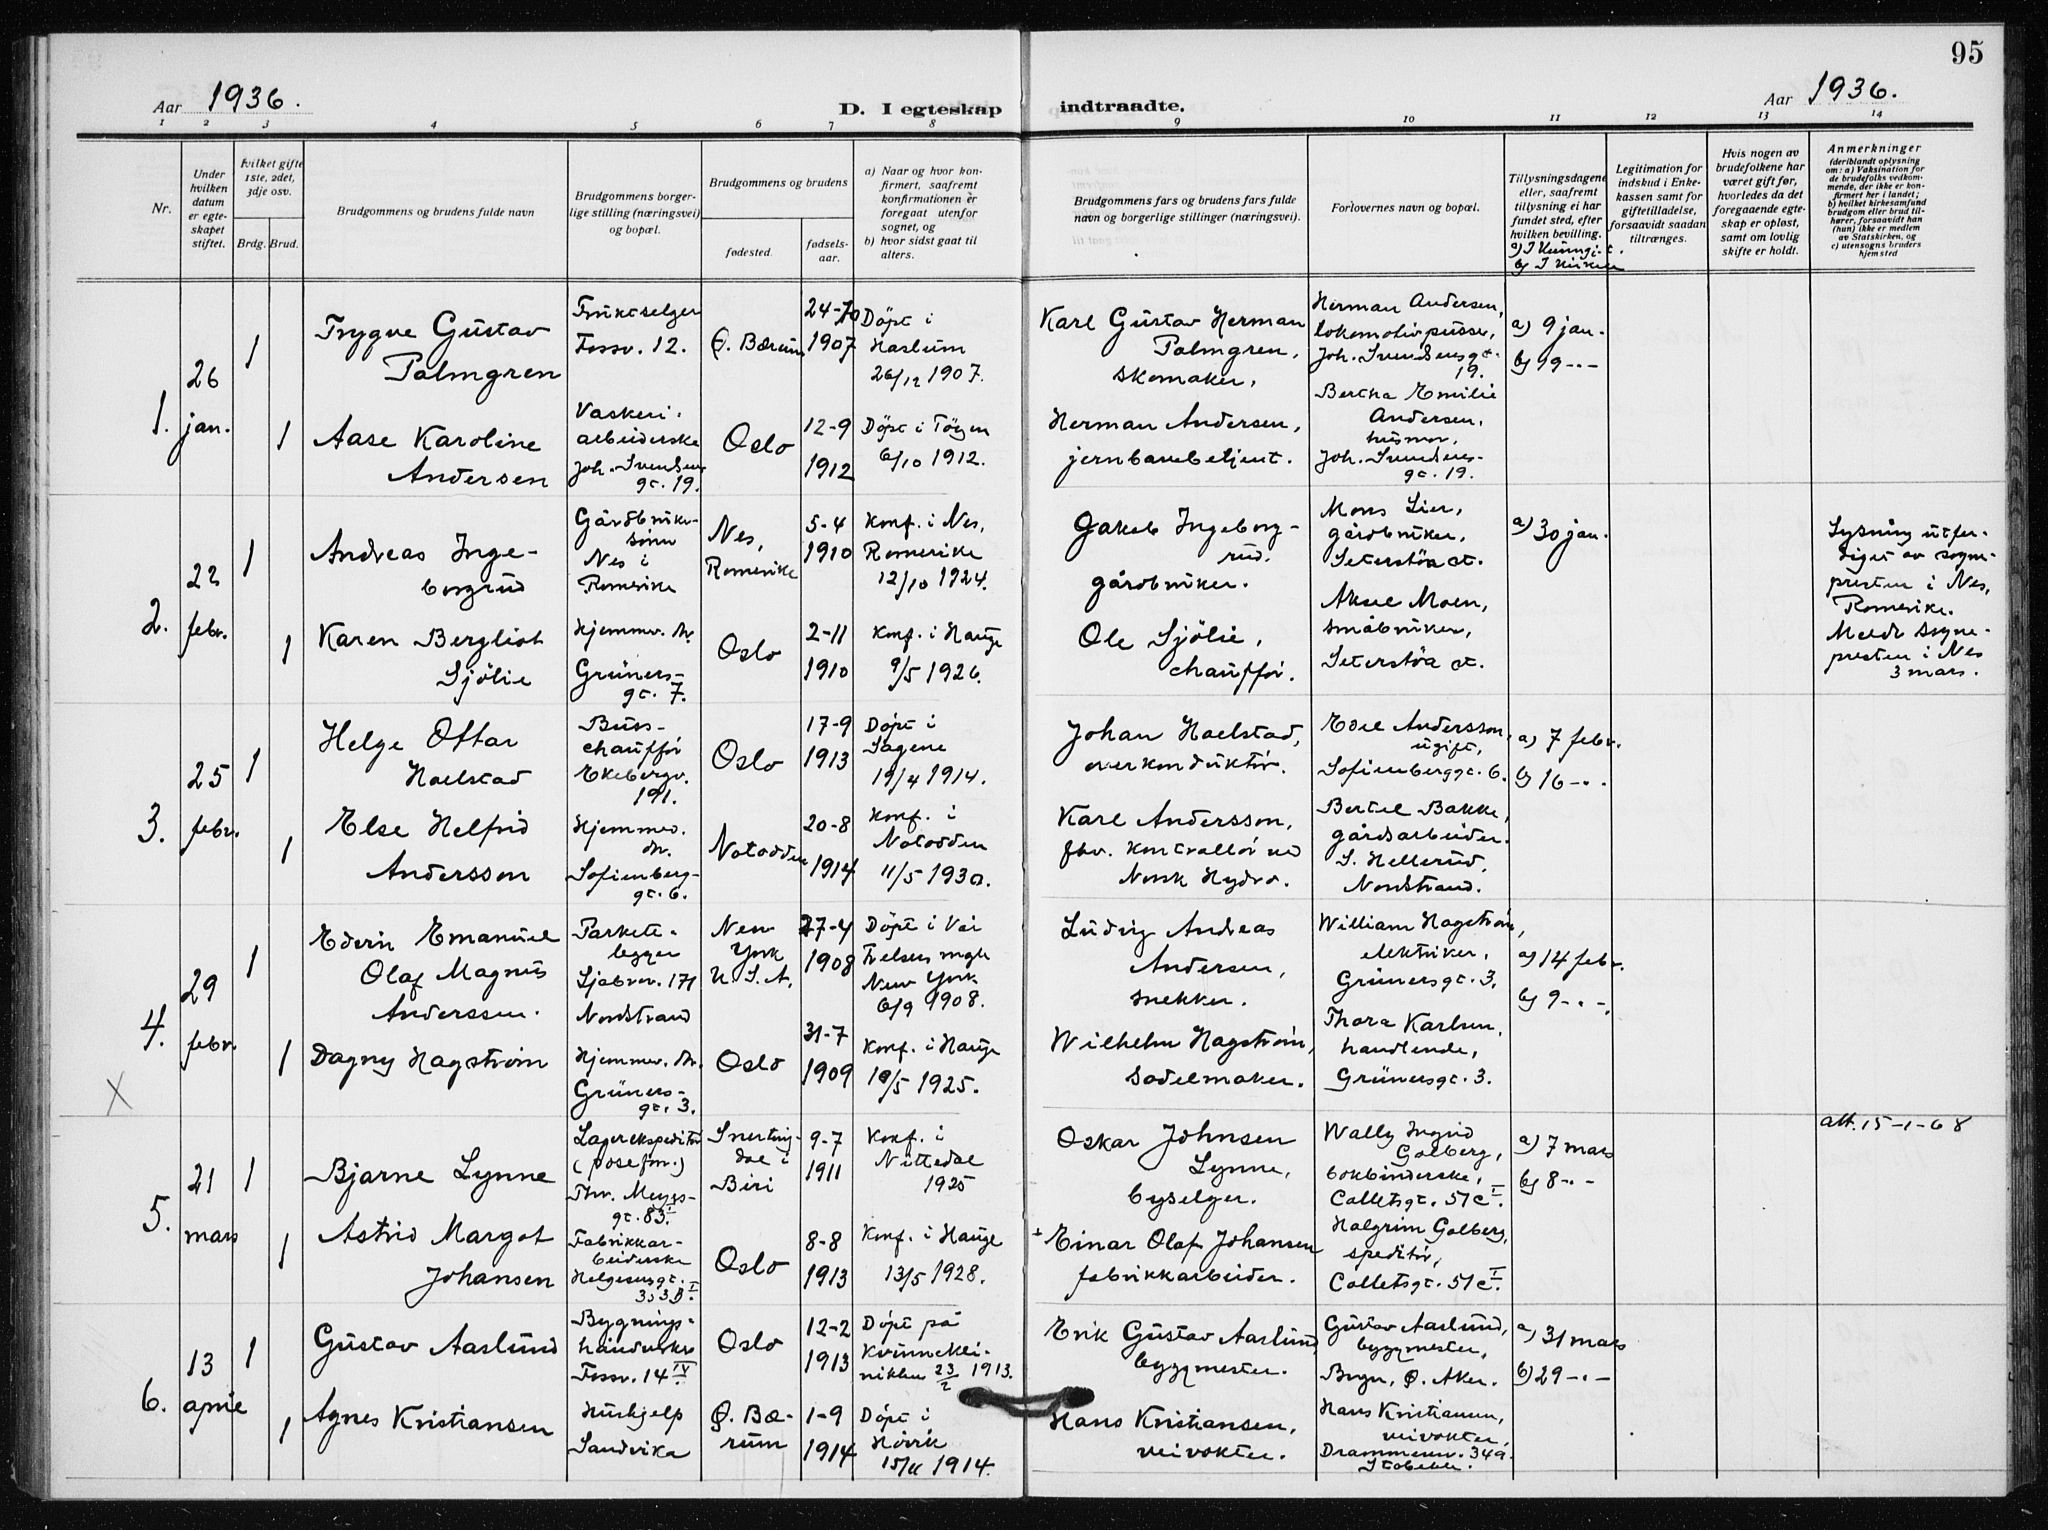 95
Aar 1936.
D. I egteskap indtraadte.
Aar 1936.
1 2 3 4 5 6 7 8 9 10 11 12 13 14
Nr.
Under
hvilken
datum
er egte-
skapet
stiftet.
Hvilket gifte
1ste, 2det,
3dje osv.
Brdg. Brud.
Brudgommens og brudens fulde navn
Brudgommens borger-
lige stilling (næringsvei)
og bopæl.
Brudgommens og brudens
fødested.
fødsels-
aar.
a) Naar og hvor kon-
firmert, saafremt
konfirmationen er
foregaat utenfor
sognet, og
b) hvor sidst gaat til
alters.
Brudgommens fars og brudens fars fulde
navn og borgerlige stillinger (næringsvei).
Forlovernes navn og bopæl.
Tillysningsdagene
eller, saafremt
tillysning ei har
fundet sted, efter
hvilken bevilling.
Legitimation for
indskud i Enke-
kassen samt for
giftetilladelse,
forsaavidt saadan
tiltrænges.
Hvis nogen av
brudefolkene har
været gift før,
hvorledes da det
foregaaende egte-
skap er opløst,
samt om lovlig
skifte er holdt.
Anmerkninger
(deriblandt oplysning
om: a) Vaksination for
de brudefolks vedkom-
mende, der ikke er kon-
firmert her i landet;
b) hvilket kirkesamfund
brudgom eller brud til-
hører, forsaavidt han
(hun) ikke er medlem
av Statskirken, og
c) utensogns bruders
hjemsted
1.
26
jan.
1
Trygve Gustav
Palmgren
Fruktselger
Fossv. 12.
Ø. Bærum
24-10
1907
Døpt i
Haslum
26/12 1907.
Karl Gustav Herman
Palmgren,
skomaker,
Herman Andersen,
lokomotivpusser,
Joh. Svendsensgt.
19.
a) 9 jan.
b) 19 -"-
1
Aase Karoline
Andersen
Vaskeri-
arbeiderske
Joh. Svendsens
gt. 19.
Oslo
12-9
1912
Døpt i Tøyen
6/10 1912.
Herman Andersen,
jernbanebetjent.
Bertha Emilie
Andersen,
husmor,
Joh. Svendsens-
gt. 19.
2.
22
febr.
1
Andreas Inge-
borgrud
Gårdbruker-
sønn
Nes i
Romerike
Nes,
Romerike
5-4
1910
Konf. i Nes,
Romerike
12/10 1924.
Jakob Ingeborg-
rud.
gårdbruker.
Mons Lier,
gårdbruker,
Seterstøa st.
a) 30 jan.
Lysning utfer-
diget av sogne-
presten i Nes,
Romerike.
Meldt sogne-
presten i Nes
3 mars.
1
Karen Bergliot
Sjølie
Hjemmev. dr.
Grüners-
gt. 7.
Oslo
2-11
1910
Konf. i Hauge
9/5 1926.
Ole Sjølie,
chauffør.
Aksel Moen,
småbruker,
Seterstøa st.
3.
25
febr.
1
Helge Ottar
Haelstad
Buss-
chauffør
Ekebergv.
191.
Oslo
17-9
1913
Døpt i
Sagene
19/4 1914.
Johan Haelstad,
overkonduktør.
Edel Andersson,
ugift,
Sofienberggt. 6.
a) 7 febr.
b) 16 -"-
1
Else Helfrid
Andersson
Hjemmev.
dr.
Sofienberg-
gt. 6.
Notodden
20-8
1914
Konf. i
Notodden
11/5 1930.
Karl Andersson,
fhv. kontrollør ved
Norsk Hydro.
Bertel Bakke,
gårdsarbeider.
S. Hellerud,
Nordstrand.
4.
29
febr.
1
Edvin Emanuel
Olaf Magnus
Anderssen.
Parkett-
legger
Ljabrov. 171
Nordstrand
New
York
U.S.A.
27-4
1908
Døpt i Vår
Frelsers mgh
New York
6/9 1908.
Ludvig Andreas
Andersen,
snekker.
William Hagstrøm,
elektriker,
Grünersgt. 3.
a) 14 febr.
b) 9 -"-
1
Dagny Hagstrøm
Hjemmev. dr.
Grüners-
gt. 3.
Oslo
31-7
1909
Konf. i Hauge
10/5 1925.
Wilhelm Hagstrøm,
sadelmaker.
Thora Karlsen,
handlende,
Grünersgt. 3.
X
5.
21
mars
1
Bjarne Lynne
Lagerekspeditør
(posefor.)
Thv. Meyers-
gt. 83 I.
Snerting-
dal i
Biri
9-7
1911
Konf. i
Nittedal
1925
Oskar Johnsen
Lynne,
byselger.
Wally Ingrid
Golberg,
bokbinderske,
Colletsgt. 51 c I.
a) 7 mars
b) 8 -"-
att. 15-1-68
1
Astrid Margot
Johansen
Fabrikkar-
beiderske
Helgesensgt.
Oslo
8-8
1913
Konf. i Hauge
13/5 1928.
+ Einar Olaf Johansen
fabrikkarbeider.
Halgrim Golberg,
speditør,
Colletsgt. 51 c I.
6.
13
april
1
Gustav Aaslund
Bygnings-
håndverker
Fossv. 14 IV.
Oslo
12-2
1913
Døpt på
Kvinnekli-
nikken 23/2 1913.
Erik Gustav Aaslund,
byggmester.
Gustav Aaslund,
byggmester,
Bryn, Ø. Aker.
a) 31 mars
b) 29 -"-
1
Agnes Kristiansen
Hushjelp
Sandvika
Ø. Bæ-
rum
1-9
1914
Døpt i
Høvik
15/11 1914.
Hans Kristiansen,
veivokter.
Hans Kristiansen,
veivokter,
Drammensv. 349.
Stabekk.